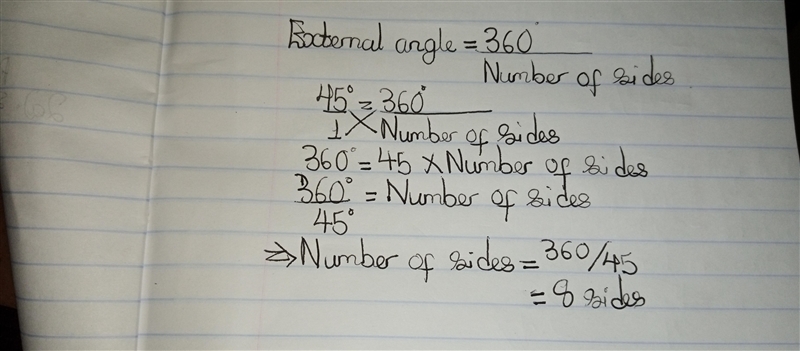 External angle = 360°
Number of sides
45° = 360°
1 Number of sides
360° = 45 × Number of sides
360° = Number of sides
45°
⇒ Number of sides = 360/45
= 8 sides